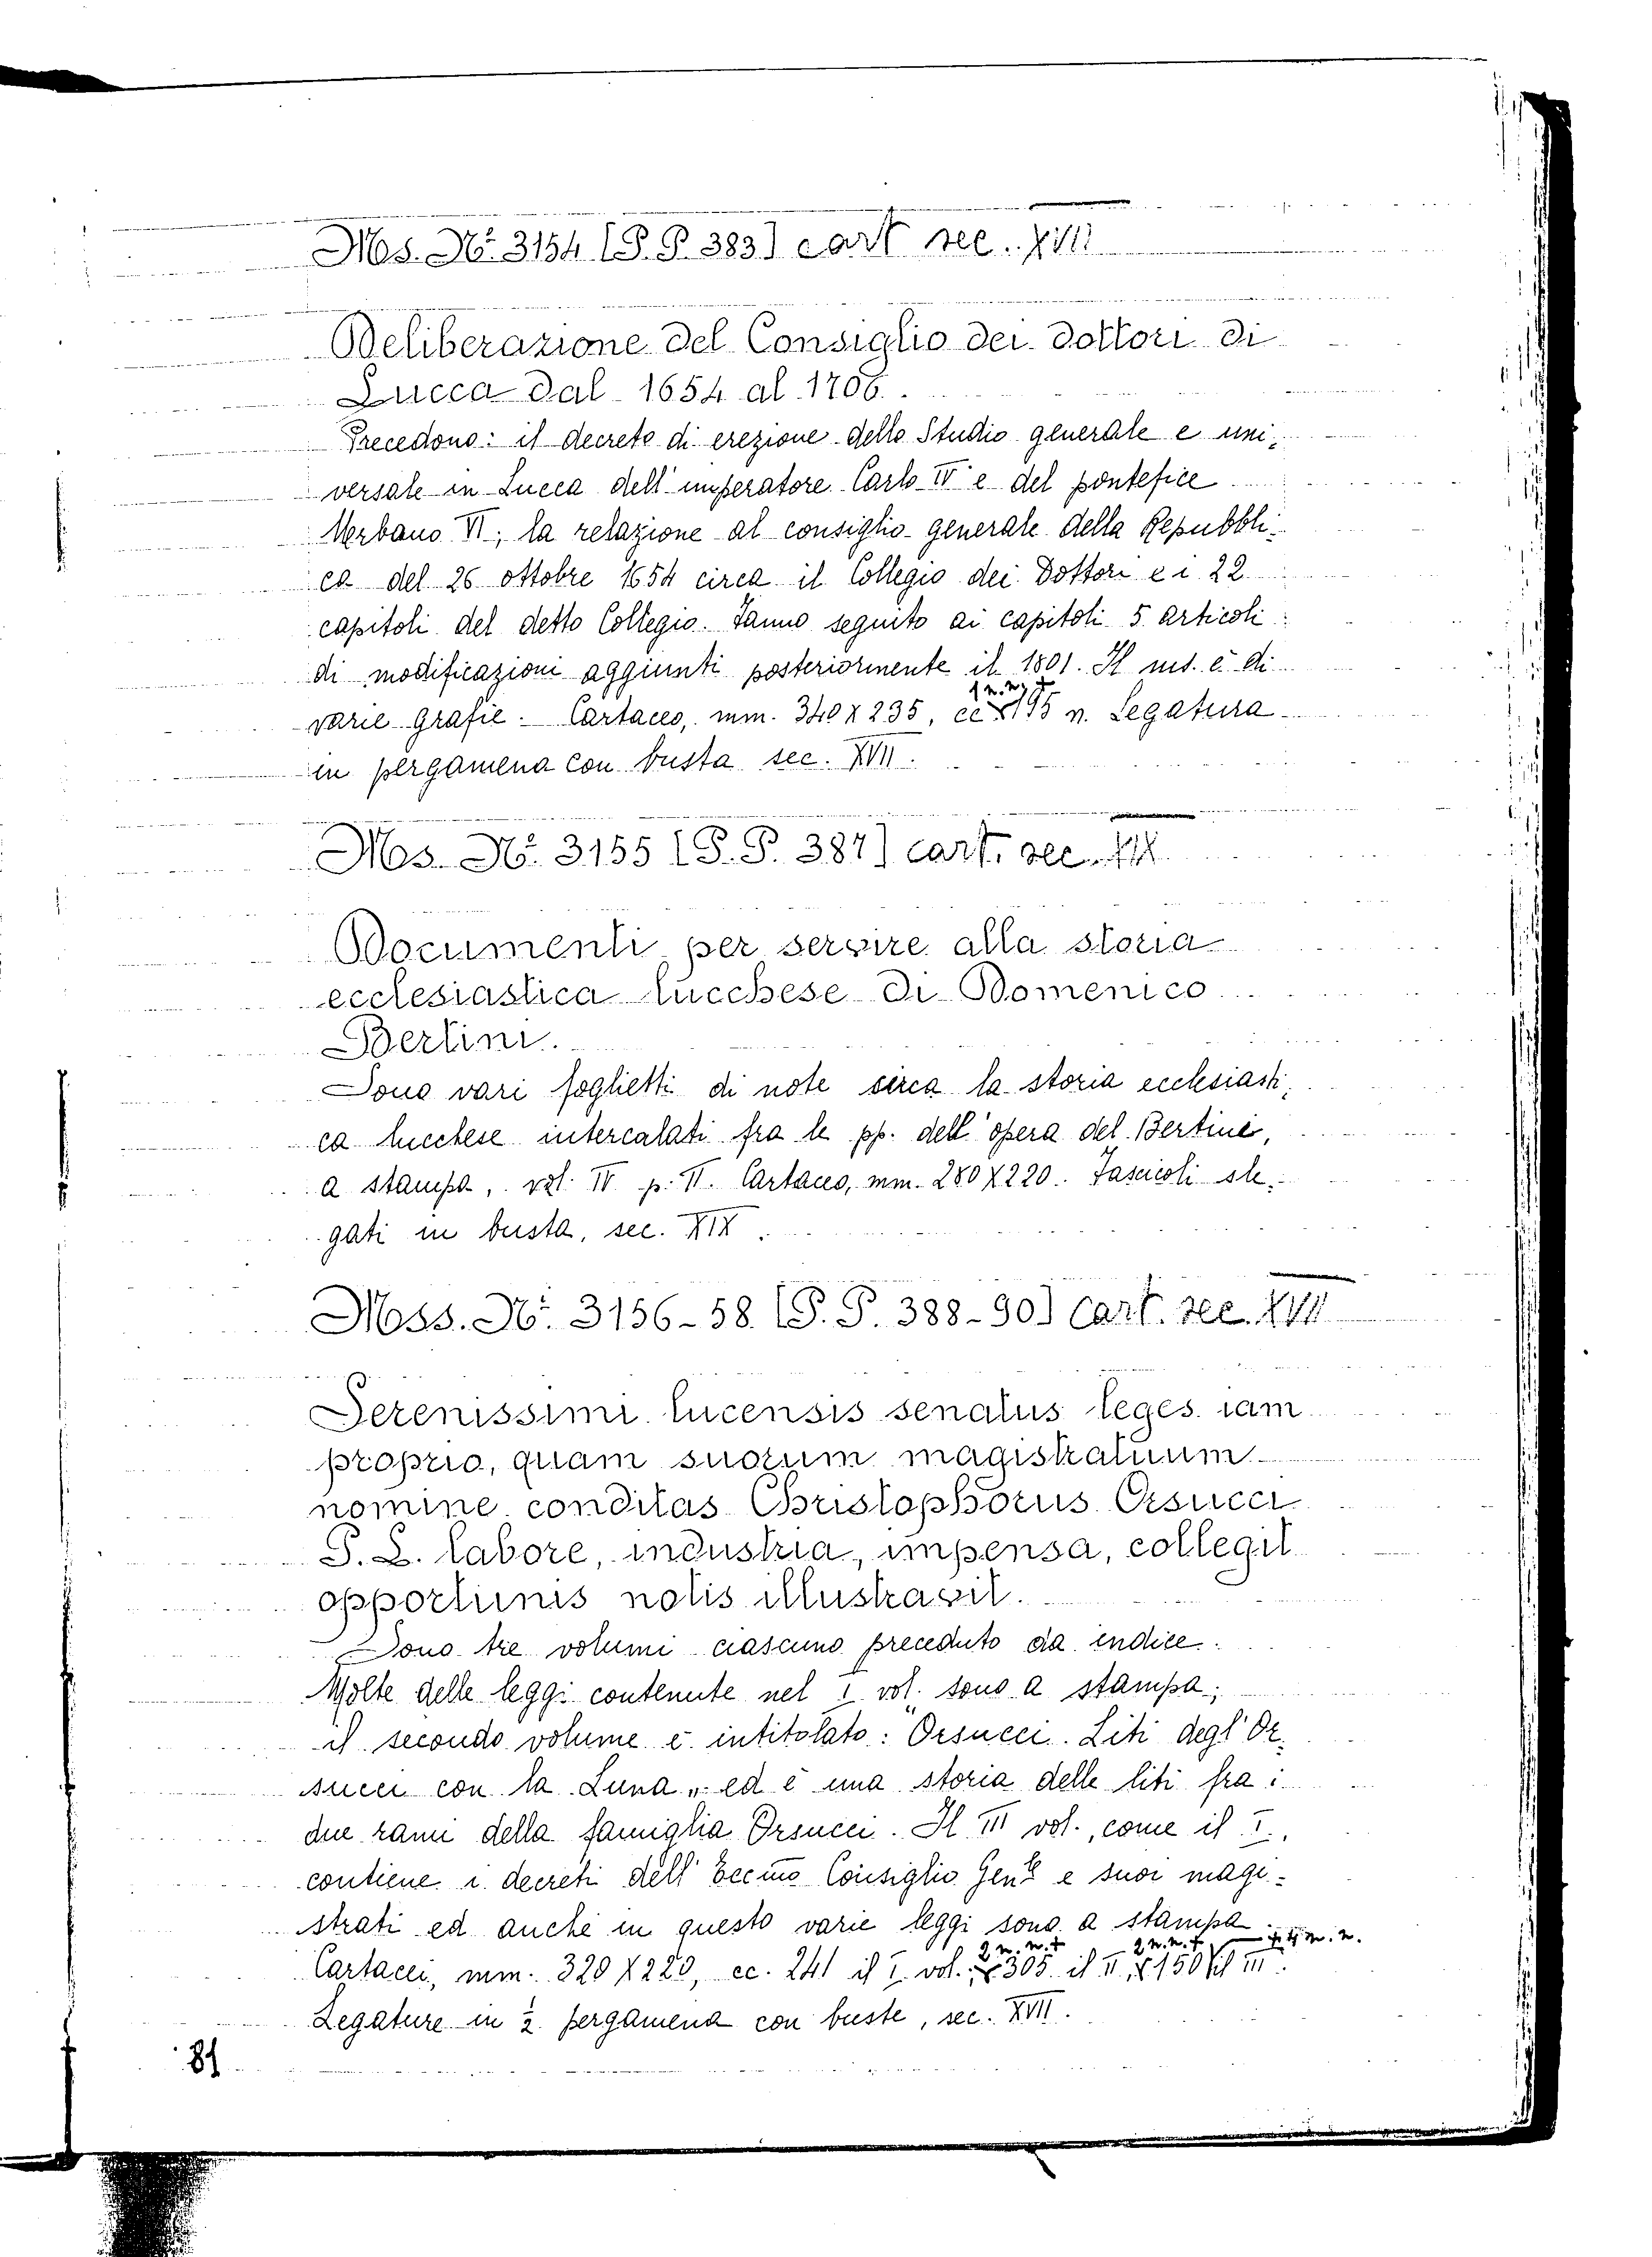 Ms. Nº. 3154 [P. P. 383] cart sec. XVII
Deliberazione del Consiglio dei dottori di
Lucca dal 1654 al 1706.
Precedono: il decreto di erezione dello Studio generale e uni-
versale in Lucca dell'imperatore Carlo IV e del pontefice
Urbano VI; la relazione al consiglio generale della Repubbli-
ca del 26 ottobre 1654 circa il Collegio dei Dottori e i 22
capitoli del detto Collegio. Fanno seguito ai capitoli 5 articoli
di modificazioni aggiunti posteriormente il 1801. Il ms. è di
varie grafie. Cartaceo, mm. 340 X 235, cc 1 n.n. + 195 n. Legatura
in pergamena con busta sec. XVII.
Ms. Nº. 3155 [P. P. 387] cart. sec. XIX
Documenti per servire alla storia
ecclesiastica lucchese di Domenico
Bertini.
Sono vari foglietti di note circa la storia ecclesiasti-
ca lucchese intercalati fra le pp. dell'opera del Bertini,
a stampa, vol. IV p. II. Cartaceo, mm. 280 X 220. Fascicoli sle-
gati in busta, sec. XIX.
Mss. Nº. 3156-58 [P. P. 388-90] cart. sec. XVII
Serenissimi lucensis senatus leges iam
proprio, quam suorum magistratuum
nomine conditas Christophorus Orsucci
P. L. labore, industria, impensa, collegit
opportunis notis illustravit.
Sono tre volumi ciascuno preceduto da indice.
Molte delle leggi contenute nel I vol. sono a stampa;
il secondo volume è intitolato: "Orsucci. Liti degl'Or-
succi con la Luna" ed è una storia delle liti fra i
due rami della famiglia Orsucci. Il III vol., come il I,
contiene i decreti dell'Ecc.mo Consiglio Gen.le e suoi magi-
strati ed anche in questo varie leggi sono a stampa.
Cartacei, mm. 320 X 220, cc. 241 il I vol.; 2 n.n. + 305 il II, 2 n.n. + 150 + 4 n.n. il III.
Legature in ½ pergamena con buste, sec. XVII.
81